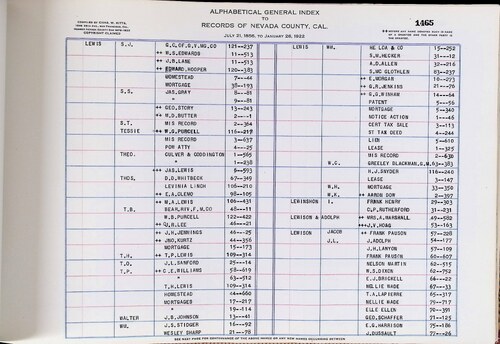 ALPHABETICAL GENERAL INDEX
TO
RECORDS OF NEVADA COUNTY, CAL.
1465
COPYRIGHT CLAIMED
JULY 21, 1856, TO JANUARY 26, 1922
LEWIS S.J. G.C.OF G.V.MG.CO 121—237 LEWIS WM. HE LOA & CO 15—252
++ W.S.EDWARDS 11—513 S.W.HECKER 31—12
++ J.B.LANE 11—513 A.D.ALLEN 32—216
++ EDWARD,HOOPER 120—383 S.MC GLOTHLEN 83—237
HOMESTEAD 7—44 ++ E.MORGAN 18—273
MORTGAGE 38—193 ++ G.R.JENKINS 21—70
S.S. JAS,GRAY 8—81 ++ G.G.WINHAM 14—64
" 9—81 PATENT 5—56
++ GEO,STORY 13—243 MORTGAGE 5—340
++ M.D.BUTTER 2—1 NOTICE ACTION 1—46
S.T. MIS RECORD 2—364 CERT TAX SALE 3—113
TESSIE ++ W.G.PURCELL 116—217 ST TAX DEED 4—244
MIS RECORD 3—637 LIEN 5—610
POW ATTY 4—25 LEASE 1—325
THEO. CULVER & CODDINGTON 1—565 MIS RECORD 2—630
" 1—238 W.C. GREELEY BLACKMAN,G.M. 63—383
++ JAS,LEWIS 8—593 H.J.SNYDER 116—240
THOS. D.D.WHITBECK 67—349 LEASE 3—147
LEVINIA LINCH 106—210 W.H. MORTGAGE 33—350
++ E.A.CLEMO 98—105 W.K. ++ AARON DOW 2—397
++ M.A.LEWIS 106—431 LEWINSHON I. FRANK HENRY 29—303
T.B. BEAR,RIV,F,M,CO 46—11 C.P.RUTHERFORD 31—231
W.B.PURCELL 122—422 LEWISON & ADOLPH ++ MRS,A.MARSHALL 49—580
++ J.H.LEE 46—21 ++ J.V.HOAG 53—163
++ J.H.JENNINGS 46—25 LEWISON JACOB ++ FRANK PAUSON 57—228
++ JNO,KURTZ 46—356 J.L. J.ADOLPH 54—177
MORTGAGE 15—173 J.H.LANYON 57—109
T.H. ++ T.P.LEWIS 109—314 FRANK PAUSON 60—607
T.O. J.L.SANFORD 25—14 NELSON MARTIN 62—515
T.P. ++ C.E.WILLIAMS 58—619 W.S.DIXEN 62—752
" 63—512 E.J.BRICKELL 64—22
T.H.LEWIS 109—314 NELLIE WADE 67—33
HOMESTEAD 44—660 T.A.LAPIERRE 65—317
MORTGAGES 17—217 NELLIE WADE 79—717
" 19—114 ELLE ELLEN 70—391
WALTER J.B.JOHNSON 13—41 GEO,SCHAFFER 71—125
WM. J.B.STIDGER 16—92 E.G.HARRISON 75—186
WESLEY SHARP 21—78 J.DUSSAULT 77—26